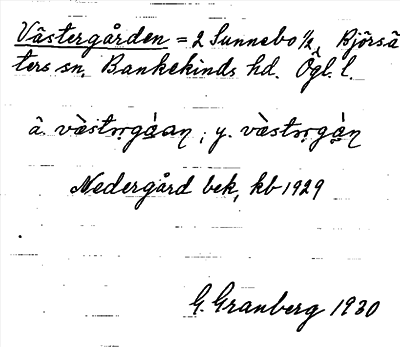 Västergården = 2 Sunnebo 1/2, Björsä
ters sn, Bankekinds hd. Ögl. l.
ä. ; y.
Nedergård bek, kb 1929
G. Granberg 1930